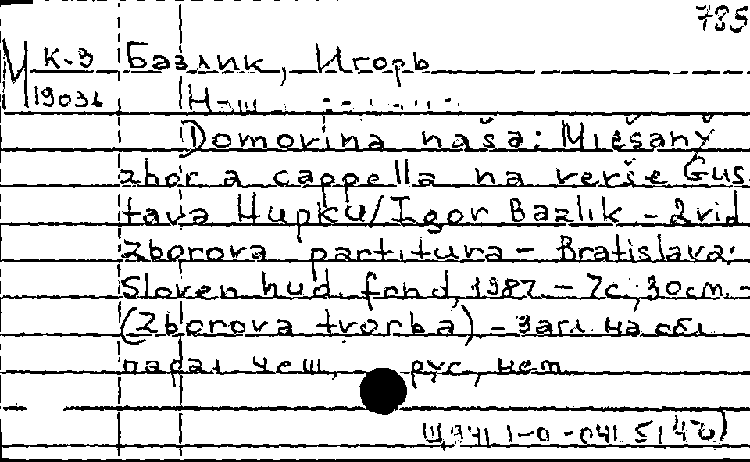 785
М К-3 Базлик, Игорь
19036
Domovina naša: Miešaný
zbor a cappella na verše Gus-
tava Hupku/Igor Bazlik - 2vid
Zborova partitura - Bratislava:
Sloven hud. fond, 1987. - 7с.; 30cm. -
(Zborova tvorba) - Загл. на обл.
парал. чеш., рус., нем.
Щ941.1-0-041.5(4